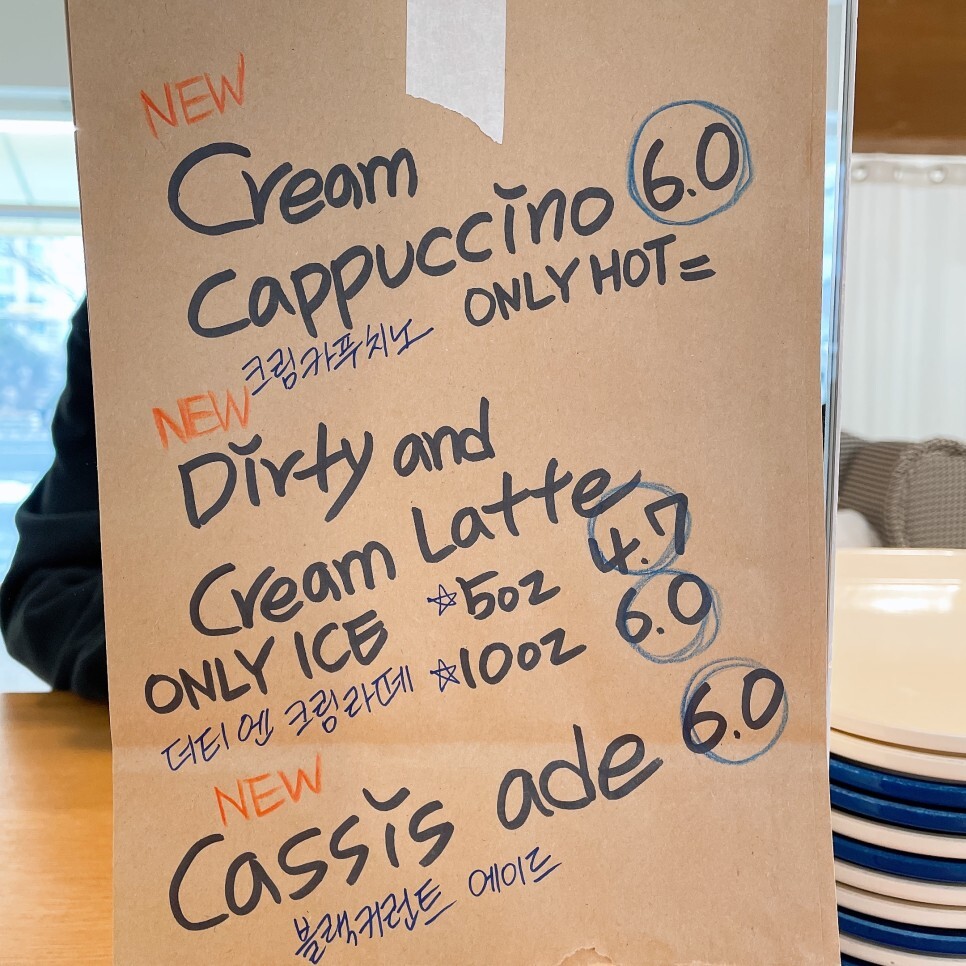 NEW
Cream
Cappuccino 6.0
ONLY HOT
크림카푸치노
NEW
Dirty and
Cream Latte
ONLY ICE ☆5oz 4.7
더티엔 크림라떼 ☆10oz 6.0
NEW
Cassis ade 6.0
블랙커런트 에이드